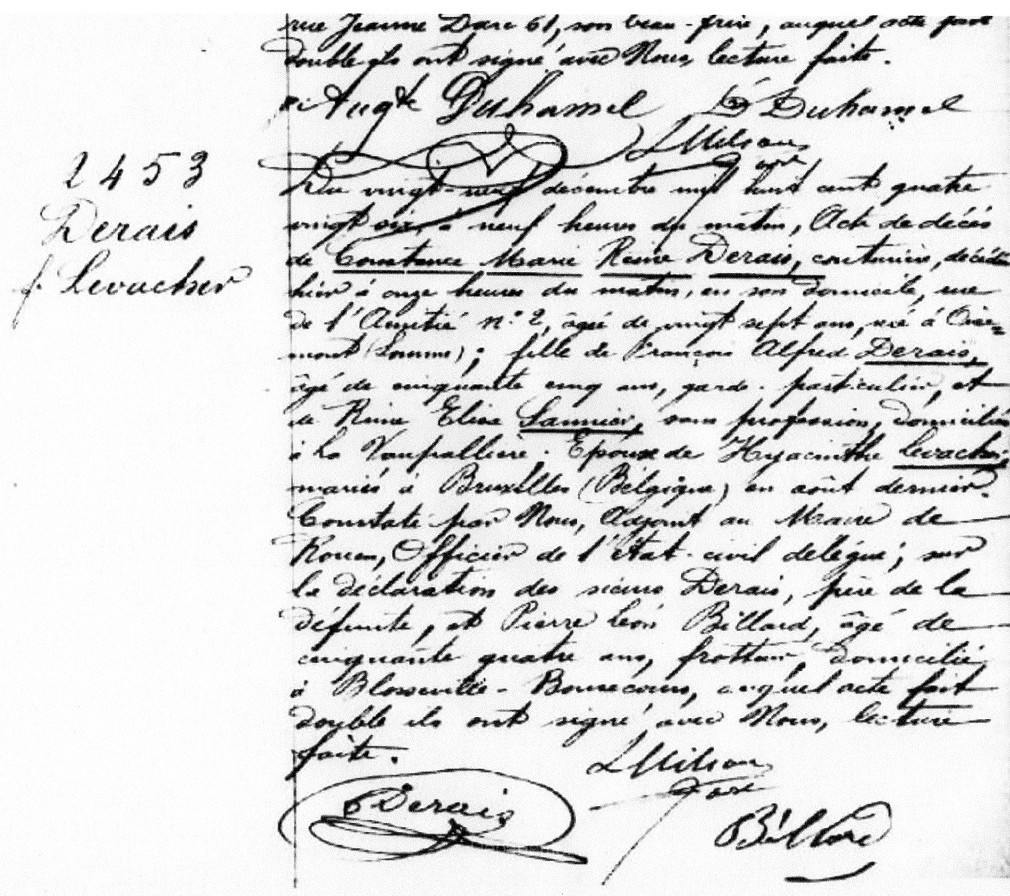 rue Jeanne Darc 61, son beau-frère, auquel acte fait
double ils ont signé avec Nous, lecture faite.
Augte Duhamel D Duhamel
2453
Derais
f. Levacher
Du vingt-neuf décembre mil huit cent quatre
vingt six à neuf heures du matin, Acte de décès
de Constance Marie Reine Derais, couturière, décédée
hier à onze heures du matin, en son domicile, rue
de l'Amitié n° 2, âgée de vingt sept ans, née à Oise-
mont (Somme); fille de François Alfred Derais,
âgé de cinquante cinq ans, garde-particulier, et
de Reine Elise Sannier, sans profession, domiciliés
à la Vaupalière. Epouse de Hyacinthe Levacher,
mariés à Bruxelles (Belgique) en août dernier.
Constaté par Nous, Adjoint au Maire de
Rouen, Officier de l'état-civil délégué; sur
la déclaration des sieurs Derais, père de la
défunte, et Pierre Léon Billard, âgé de
cinquante quatre ans, frotteur, domicilié
à Blosseville-Bonsecours, auquel acte fait
double ils ont signé avec Nous, lecture
faite.
Derais
Billard